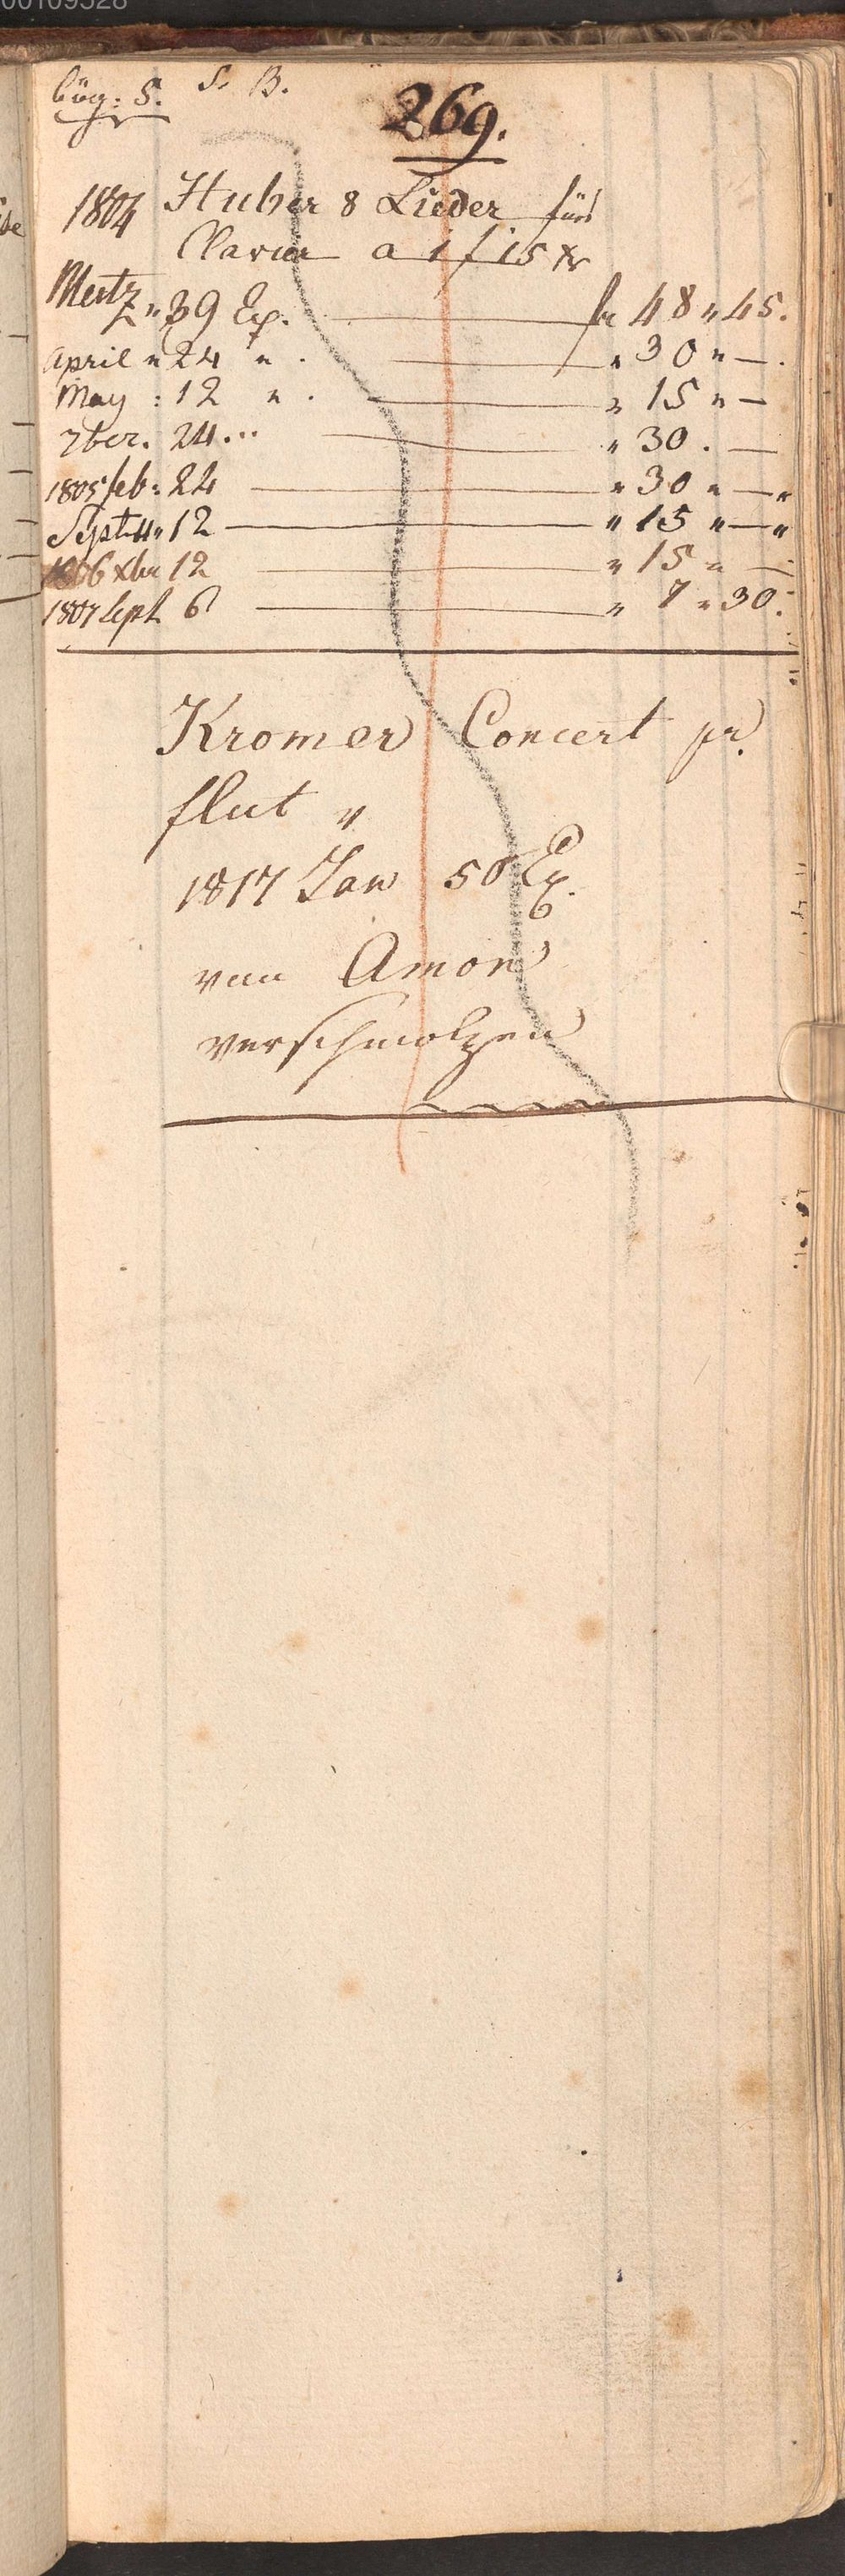 00109528
büg: 5. S. B.
269.
1804 Huber 8 Lieder fürs
Clavier a 1 f 15 xr
Mertz " 39 Ex. f " 48 " 45.
April " 24 " . " 30 " —.
May : 12 " . " 15 " —
7ber. 24... " 30 . —
1805 feb: 24 " 30 " — "
Sept " 12 " 15 " — "
1806 xbr 12 " 15 " —
1807 Sept 6 " 7 " 30.
Kromer Concert pr.
flut "
1817 Jan 50 Ex.
von Amon
verschmolzen